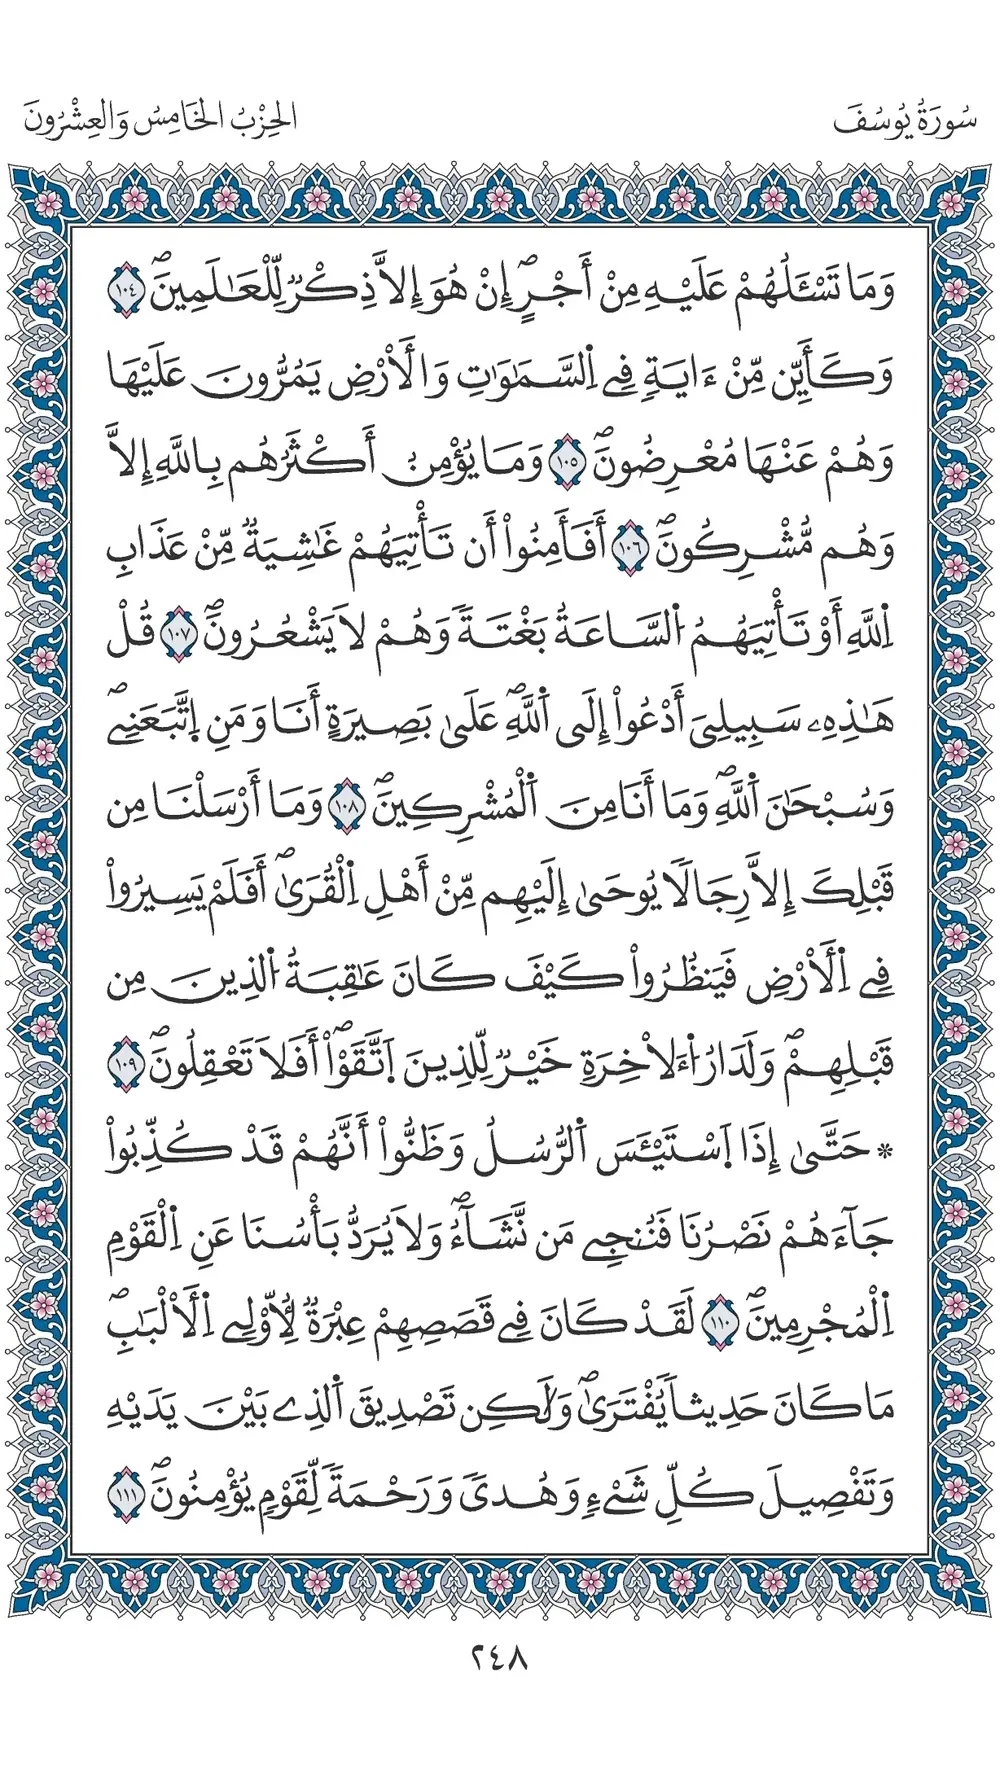 سُورَةُ يُوسُفَ
الحِزْبُ الخَامِسُ وَالعِشْرُونَ
وَمَا تَسْـَٔلُهُمْ عَلَيْهِ مِنْ أَجْرٍۖ إِنْ هُوَ إِلاَّ ذِكْرٞ لِّلْعَٰلَمِينَۖ ١٠٤
وَكَأَيِّن مِّنْ ءَايَةٖ فِے اِ۬لسَّمَٰوَٰتِ وَالَارْضِ يَمُرُّونَ عَلَيْهَا
وَهُمْ عَنْهَا مُعْرِضُونَۖ ١٠٥ وَمَا يُؤْمِنُ أَكْثَرُهُم بِاللَّهِ إِلاَّ
وَهُم مُّشْرِكُونَۖ ١٠٦ أَفَأَمِنُوٓاْ أَن تَأْتِيَهُمْ غَٰشِيَةٞ مِّنْ عَذَابِ
اِ۬للَّهِ أَوْ تَأْتِيَهُمُ اُ۬لسَّاعَةُ بَغْتَةٗ وَهُمْ لَا يَشْعُرُونَۖ ١٠٧ قُلْ
هَٰذِهِۦ سَبِيلِيَ أَدْعُواْ إِلَى اَ۬للَّهِۖ عَلَىٰ بَصِيرَةٍ أَنَا وَمَنِ اِ۪تَّبَعَنِےۖ
وَسُبْحَٰنَ اَ۬للَّهِۖ وَمَا أَنَا مِنَ اَ۬لْمُشْرِكِينَۖ ١٠٨ وَمَا أَرْسَلْنَا مِن
قَبْلِكَ إِلاَّ رِجَالٗا يُوحَىٰ إِلَيْهِم مِّنْ أَهْلِ اِ۬لْقُرَىٰۖ أَفَلَمْ يَسِيرُواْ
فِے اِ۬لْأَرْضِ فَيَنظُرُواْ كَيْفَ كَانَ عَٰقِبَةُ اُ۬لذِينَ مِن
قَبْلِهِمْۖ وَلَدَارُ اُ۬لْأٓخِرَةِ خَيْرٞ لِّلذِينَ اَ۪تَّقَوْاْۖ أَفَلَا تَعْقِلُونَۖ ١٠٩
* حَتَّىٰ إِذَا اَ۪سْتَيْـَٔسَ اَ۬لرُّسُلُ وَظَنُّواْ أَنَّهُمْ قَدْ كُذِّبُواْ
جَآءَهُمْ نَصْرُنَا فَنُنجِے مَن نَّشَآءُۖ وَلَا يُرَدُّ بَأْسُنَا عَنِ اِ۬لْقَوْمِ
اِ۬لْمُجْرِمِينَۖ ١١٠ لَقَدْ كَانَ فِے قَصَصِهِمْ عِبْرَةٞ لِّأُوْلِے اِ۬لْأَلْبَٰبِۖ
مَا كَانَ حَدِيثاٗ يُفْتَرَىٰۖ وَلَٰكِن تَصْدِيقَ اَ۬لذِے بَيْنَ يَدَيْهِ
وَتَفْصِيلَ كُلِّ شَےْءٖ وَهُدىٗ وَرَحْمَةٗ لِّقَوْمٖ يُؤْمِنُونَۖ ١١١
٢٤٨